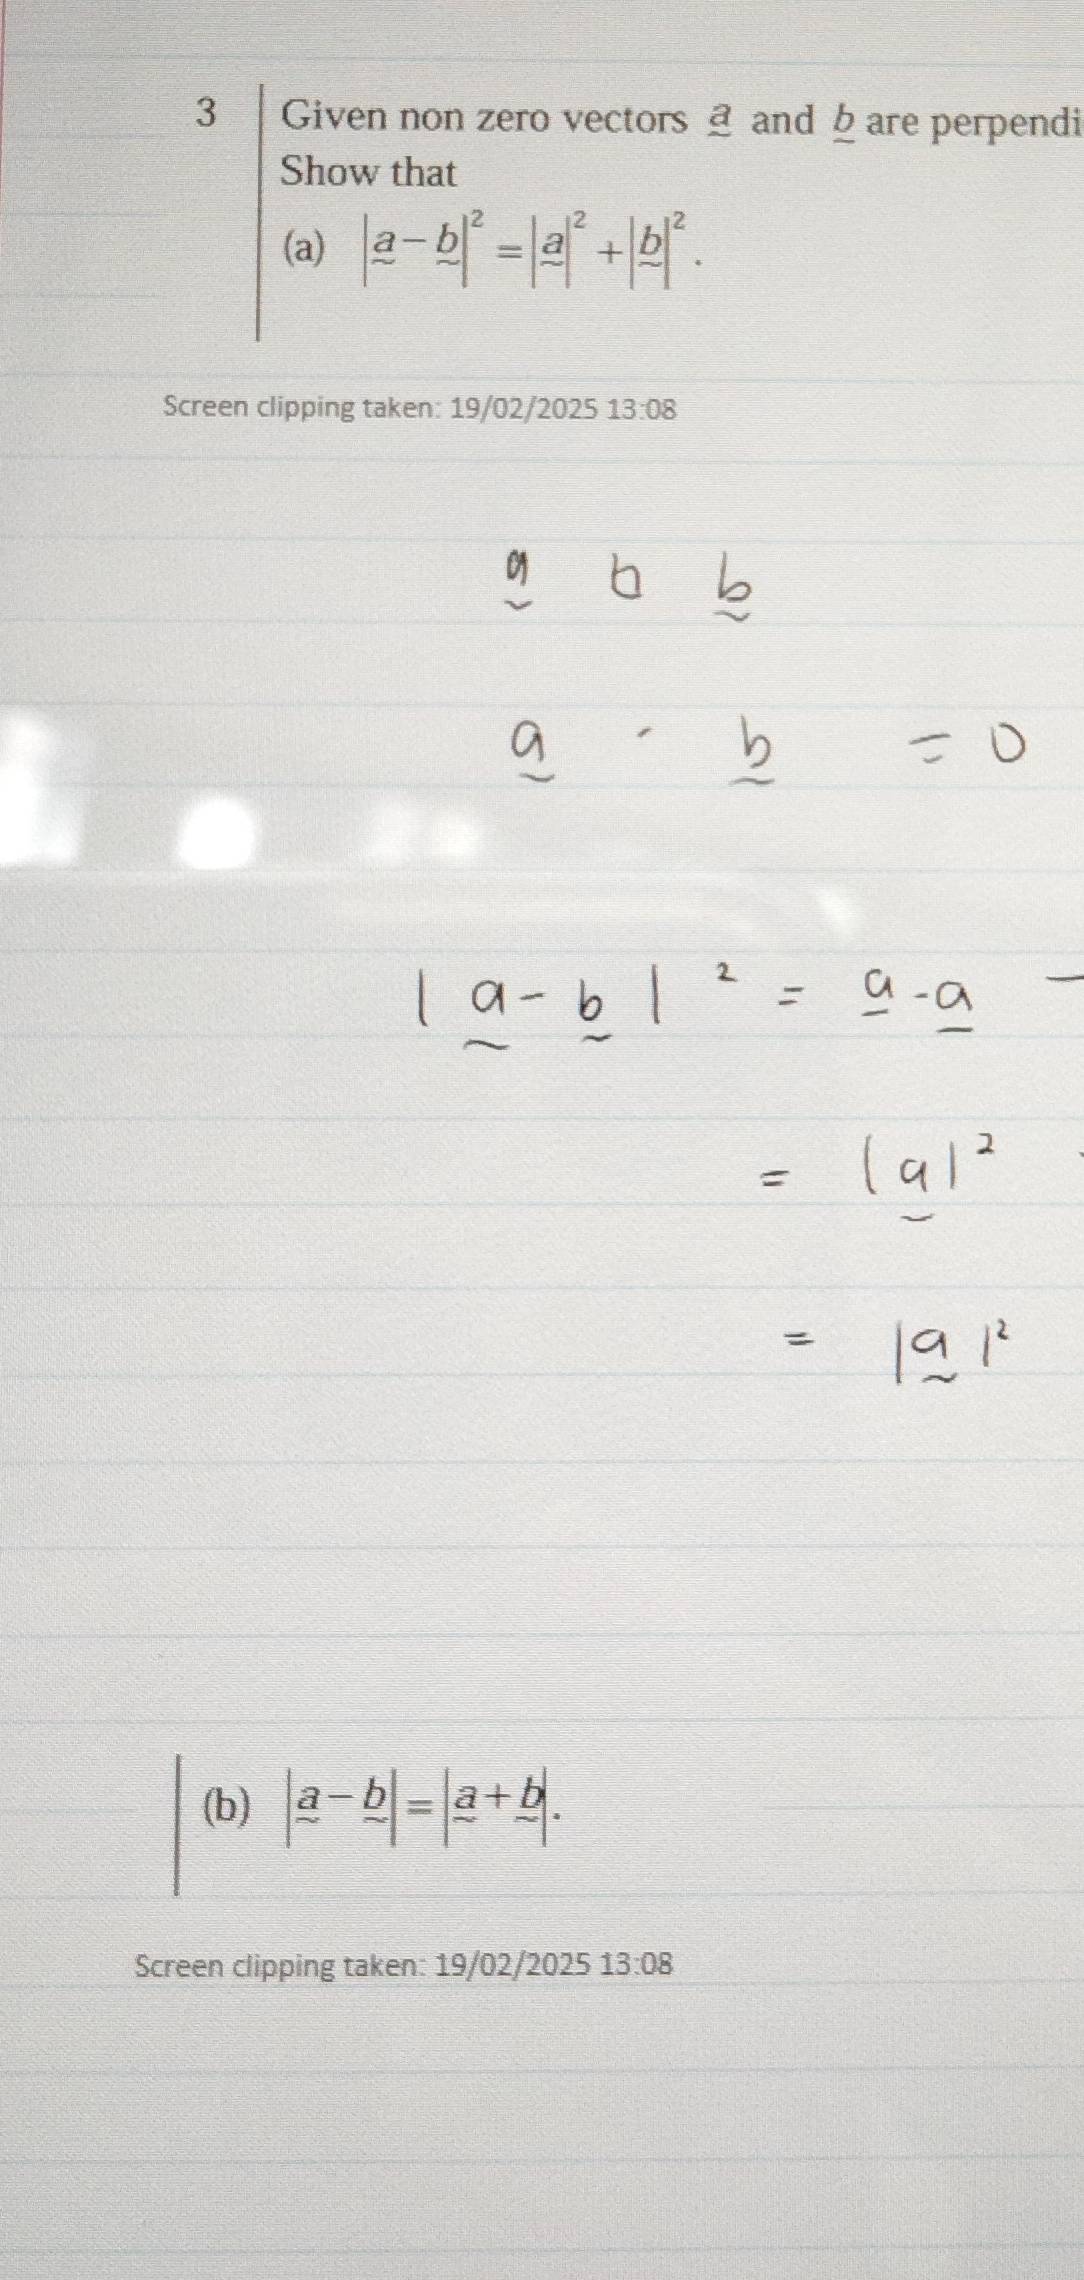 3 Given non zero vectors a and b are perpendi
Show that
(a) |a - b|² = |a|² + |b|².
Screen clipping taken: 19/02/2025 13:08
a b
a · b = 0
|a - b|² = a · a -
= |a|²
= |a|²
(b) |a - b| = |a + b|.
Screen clipping taken: 19/02/2025 13:08